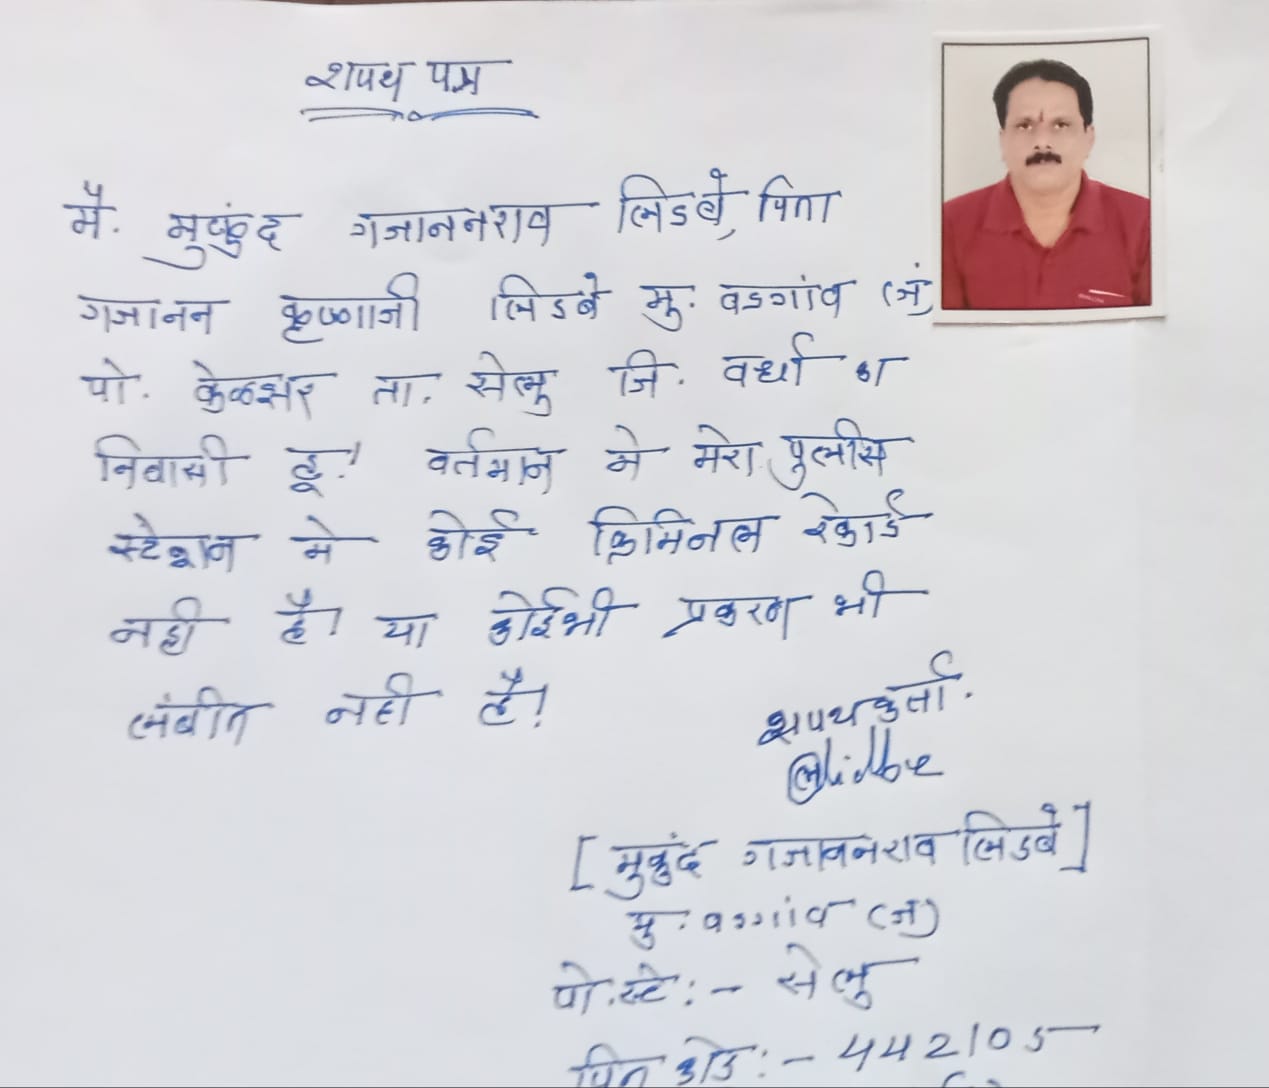 शपथ पत्र
मै. मुकुंद गजाननराव लिडबे, पिता
गजानन कृष्णाजी लिडबे मु. वडगांव (जं)
पो. केळझर ता. सेलु जि. वर्धा का
निवासी हू! वर्तमान मे मेरा पुलीस
स्टेशन मे कोई क्रिमिनल रेकार्ड
नही है! या कोईभी प्रकरण भी
लंबीत नही है!
शपथकर्ता.
[मुकुंद गजाननराव लिडबे]
मु. वडगांव (जं)
पो.स्टे:- सेलु
पिन कोड:- 442105